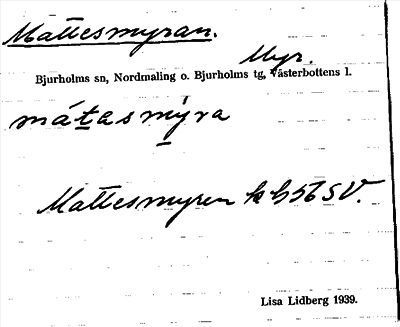 Mattesmyran.
Myr.
Bjurholms sn, Nordmaling o. Bjurholms tg, Västerbottens l.
mátasmyra
Mattesmyren k G56SV.
Lisa Lidberg 1939.